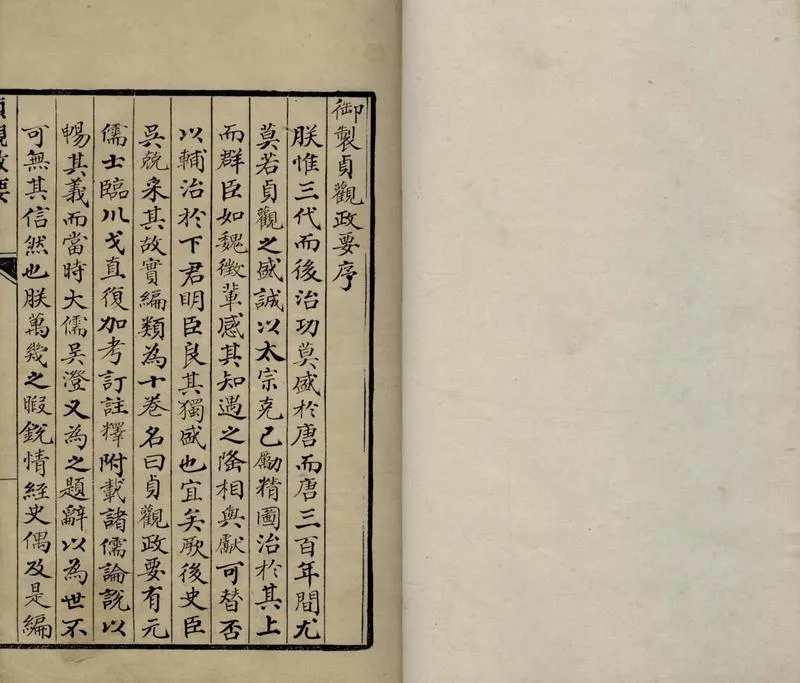 御製貞觀政要序
朕惟三代而後治功莫盛於唐而唐三百年間尤
莫若貞觀之盛誠以太宗克己勵精圖治於其上
而群臣如魏徵輩感其知遇之隆相與獻可替否
以輔治於下君明臣良其獨盛也宜矣厥後史臣
吳兢采其故實編類為十卷名曰貞觀政要有元
儒士臨川戈直復加考訂註釋附載諸儒論說以
暢其義而當時大儒吳澄又為之題辭以為世不
可無其信然也朕萬幾之暇銳情經史偶及是編
貞觀政要